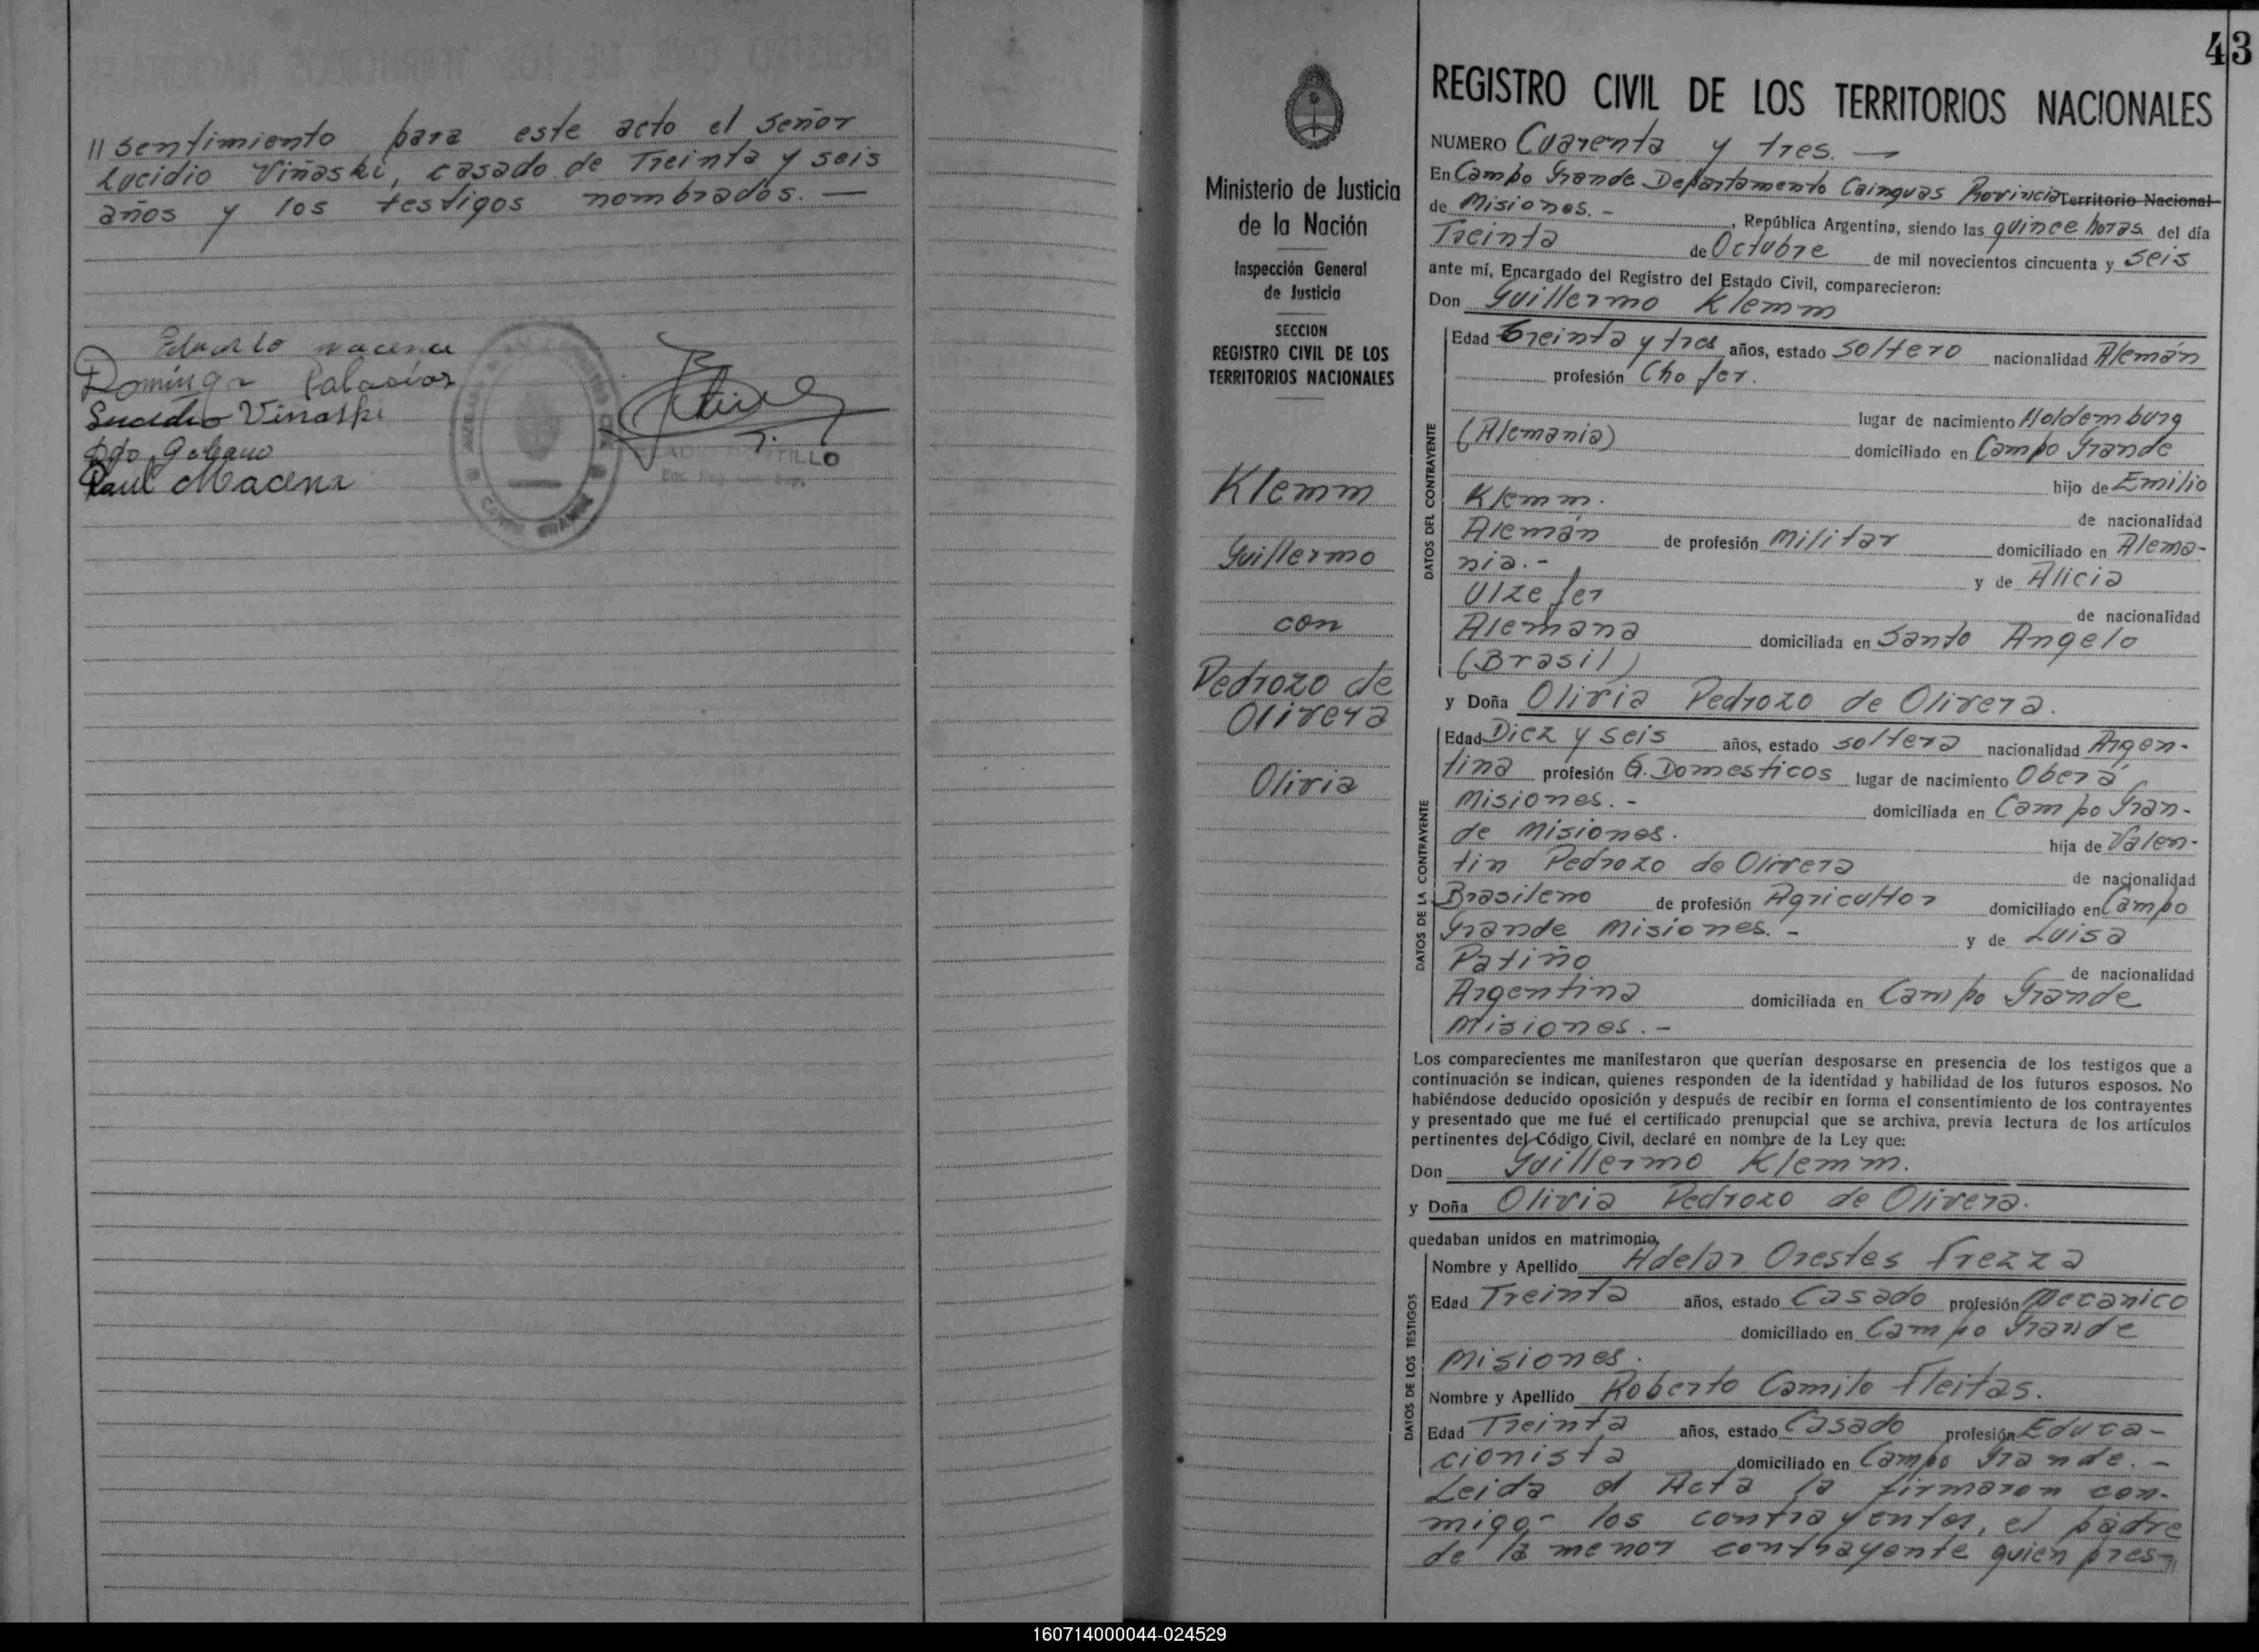 // sentimiento para este acto el señor
Lucidio Viñaski, casado de Treinta y seis
años y los testigos nombrados. —
macena
Dominga Palacios
Lucidio Vinaski
Raul Macena
PORTILLO
43
REGISTRO CIVIL DE LOS TERRITORIOS NACIONALES
Ministerio de Justicia
de la Nación
Inspección General
de Justicia
SECCION
REGISTRO CIVIL DE LOS
TERRITORIOS NACIONALES
Klemm
Guillermo
con
Pedrozo de
Olivera
Oliria
NUMERO Cuarenta y tres. —
En Campo Grande Departamento Cainguas Provincia Territorio Nacional
de Misiones. - , República Argentina, siendo las quince horas del día
Treinta de Octubre de mil novecientos cincuenta y seis
ante mí, Encargado del Registro del Estado Civil, comparecieron:
Don Guillermo Klemm
DATOS DEL CONTRAYENTE
Edad Treinta y tres años, estado soltero nacionalidad Alemán
profesión Chofer.
lugar de nacimiento Holdemburg
(Alemania) domiciliado en Campo Grande
hijo de Emilio
Klemm. de nacionalidad
Alemán de profesión Militar domiciliado en Alema-
nia.- y de Alicia
Ulzefer de nacionalidad
Alemana domiciliada en Santo Angelo
(Brasil)
y Doña Oliria Pedrozo de Olivera.
DATOS DE LA CONTRAYENTE
Edad Diez y seis años, estado soltera nacionalidad Argen-
tina profesión Q. Domesticos lugar de nacimiento Oberá
Misiones. - domiciliada en Campo Gran-
de Misiones. hija de Valen-
tin Pedrozo de Olivera de nacionalidad
Brasileno de profesión Agricultor domiciliado en Campo
Grande Misiones. - y de Luisa
Patiño de nacionalidad
Argentina domiciliada en Campo Grande
Misiones. -
Los comparecientes me manifestaron que querían desposarse en presencia de los testigos que a
continuación se indican, quienes responden de la identidad y habilidad de los futuros esposos. No
habiéndose deducido oposición y después de recibir en forma el consentimiento de los contrayentes
y presentado que me fué el certificado prenupcial que se archiva, previa lectura de los artículos
pertinentes del Código Civil, declaré en nombre de la Ley que:
Don Guillermo Klemm.
y Doña Oliria Pedrozo de Olivera.
quedaban unidos en matrimonio.
DATOS DE LOS TESTIGOS
Nombre y Apellido Adelar Orestes Frezza
Edad Treinta años, estado Casado profesión Mecanico
domiciliado en Campo Grande
Misiones.
Nombre y Apellido Roberto Camilo Fleitas.
Edad Treinta años, estado Casado profesión Educa-
cionista domiciliado en Campo Grande. -
Leida el Acta la firmaron con-
migo- los contrayentes, el padre
de la menor contrayente quien pres- //
160714000044-024529